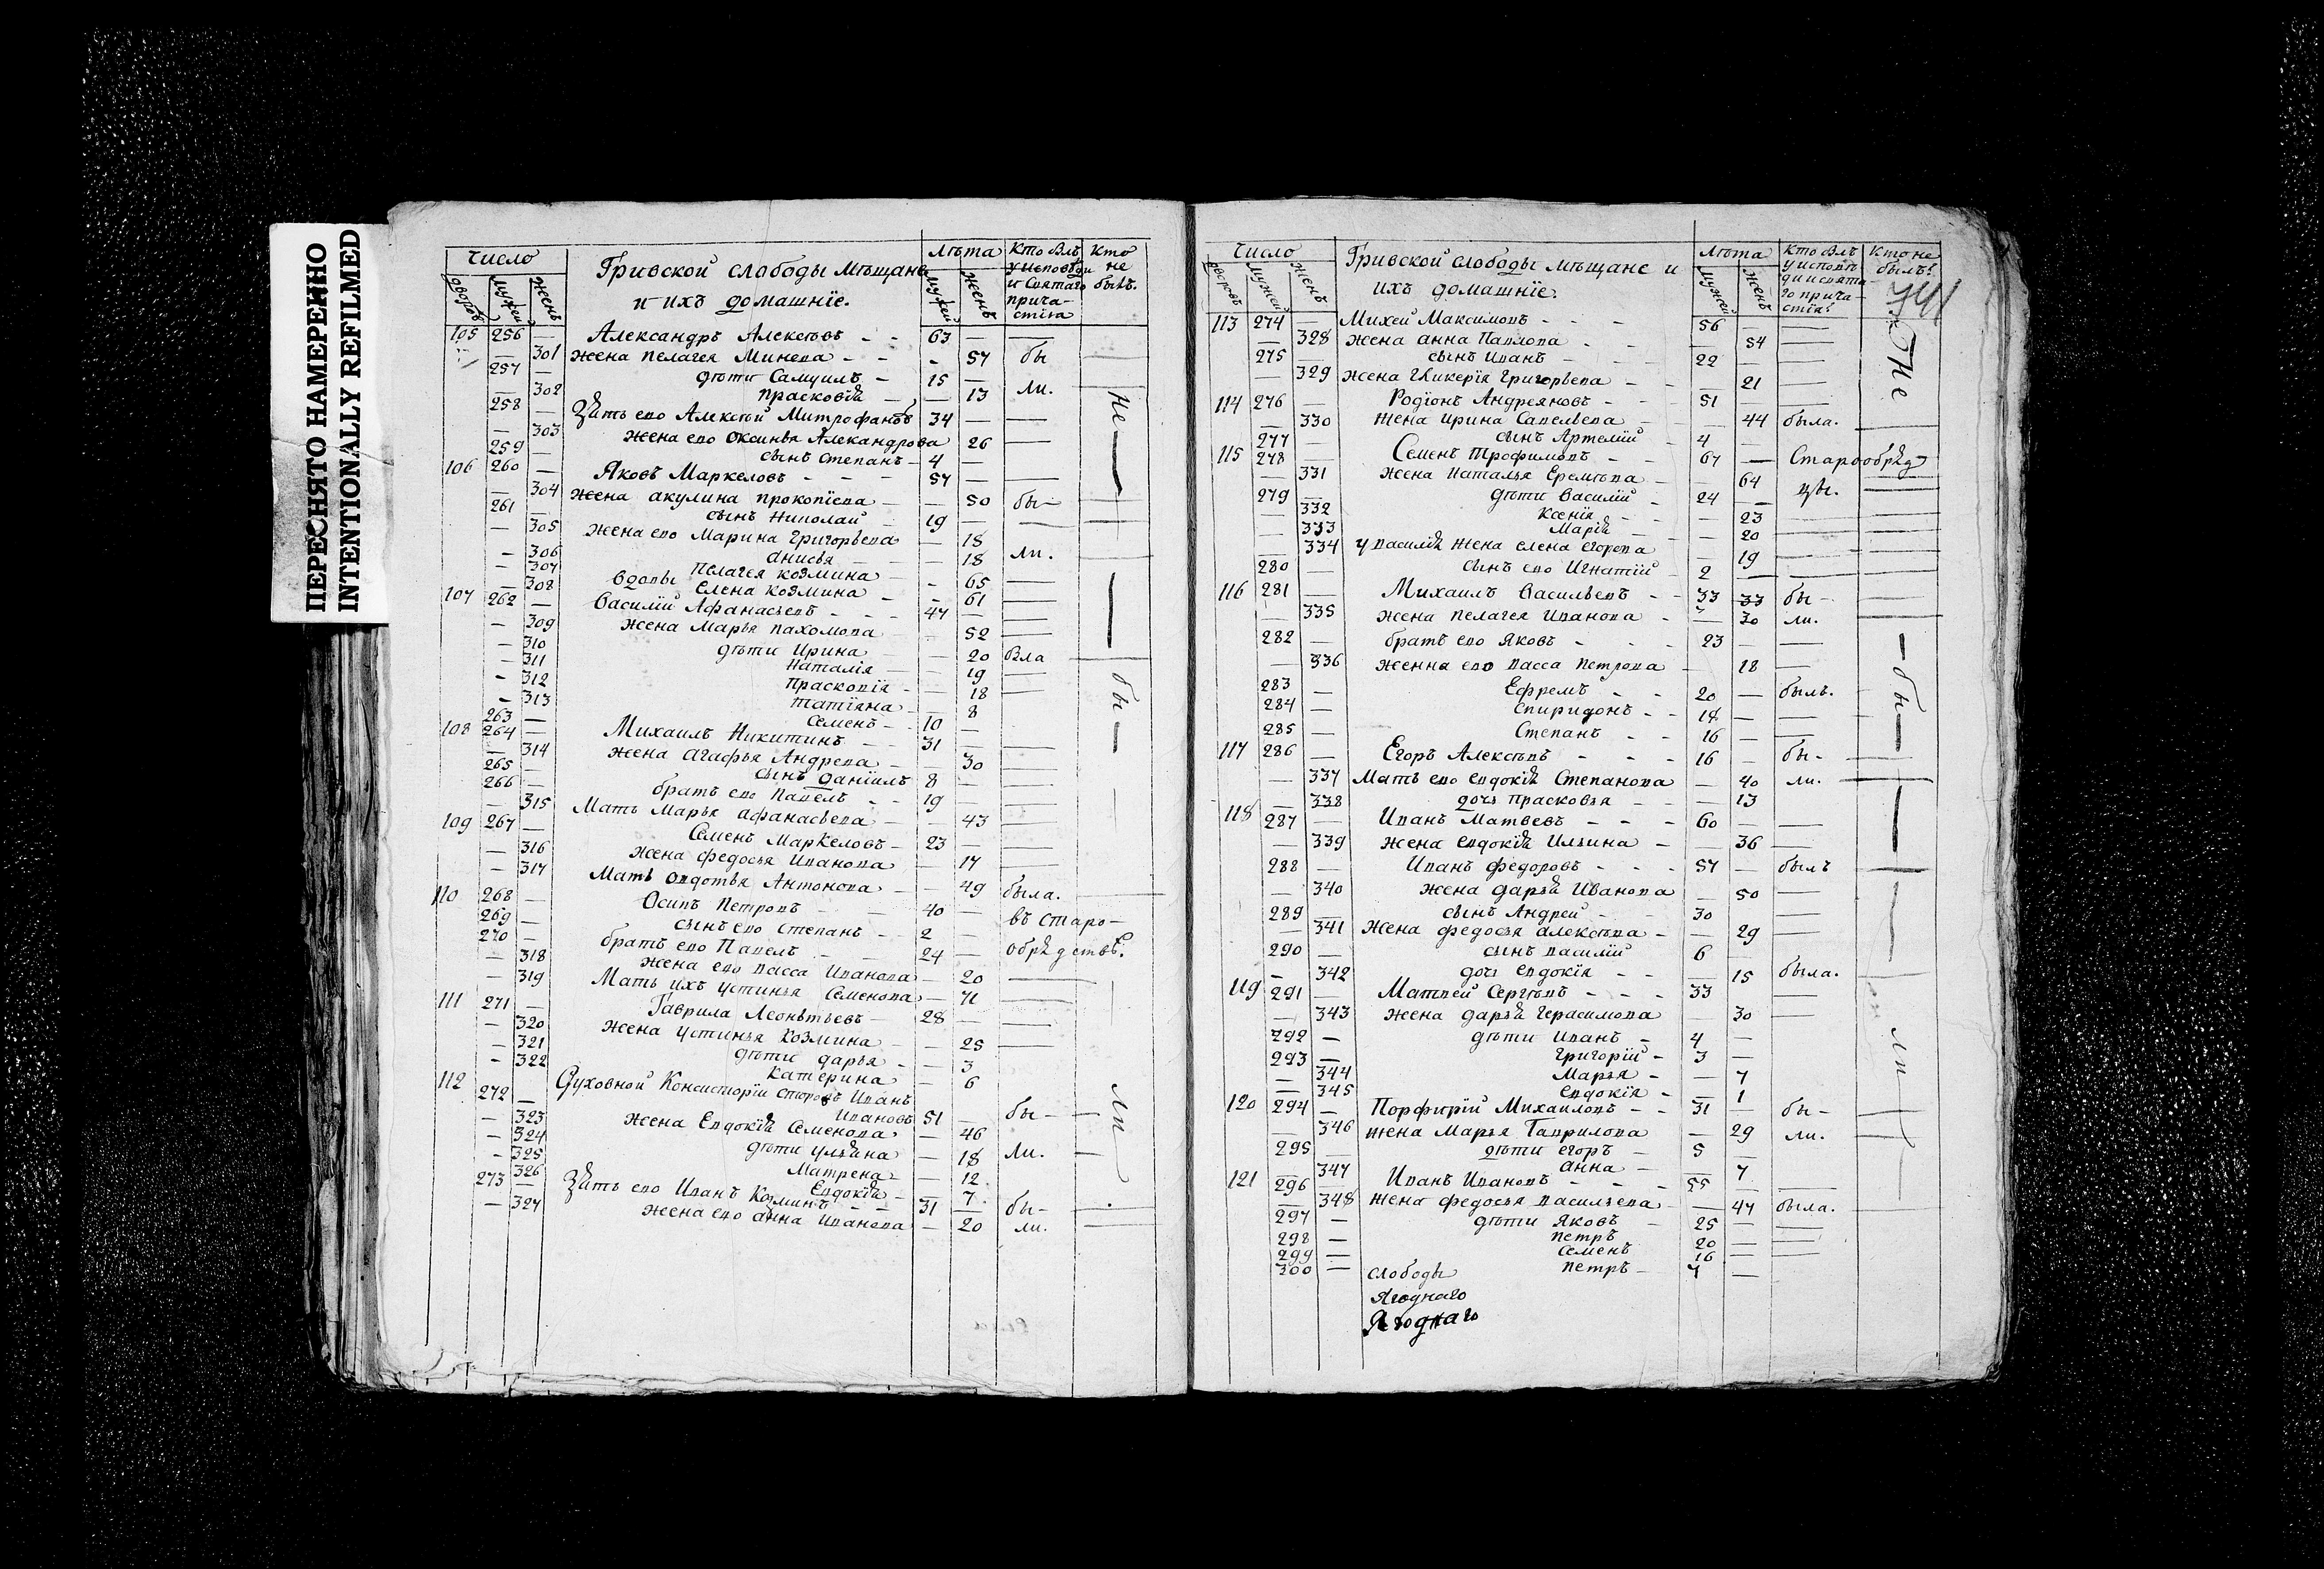 ПЕРЕСНЯТО НАМЕРЕННО
INTENTIONALLY REFILMED
Число Гривской слободы мѣщане Лѣта Кто былъ Кто
дворовъ мужей женъ и ихъ домашнїе. мужей женъ у исповѣди не
и святаго былъ.
прича-
стїя
105 256 — Александръ Алексѣевъ - - 63 — —
— 301 жена Пелагея Минева - - - 57 бы
257 — дѣти Самуилъ - 15 —
— 302 Прасковїя — 13 ли. не
258 — Зять ево Алексѣй Митрофановъ 34 — —
— 303 жена ево Оксинья Александрова 26 —
259 — сынъ Степанъ - 4 —
106 260 — Яковъ Маркеловъ - - - 57 — —
— 304 жена Акулина Прокопїева — — 50 бы-
261 — сынъ Николай - 19 — —
— 305 жена ево Марина Григорьева — 18
- 306 Анисья — — 18 ли.
- 307 вдовы Пелагея Козмина — - 65 —
— 308 Елена Козмина - - 61 —
107 262 — Василїй Афанасьевъ - - - 47 — —
- 309 жена Марья Пахомова — 52 —
- 310 дѣти Ирина — — 20 была
- 311 Наталїя — — 19 —
- 312 Прасковїя - — 18 —
- 313 Татїяна — — 8
263 — Семенъ - - 10 —
108 264 — Михаилъ Никитинъ - - 31 — —
— 314 жена Агафья Андрева — 30 —
265 — сынъ Данїилъ 8 — —
266 — братъ ево Павелъ - - 19 — —
— 315 Мать Марья Афанасьева — — 43 —
109 267 — Семенъ Маркеловъ - 23 — —
— 316 жена Федосья Иванова — 17 —
- 317 Мать Овдотья Антонова — — 49 была.
110 268 — Осипъ Петровъ - 40 — въ старо-
269 — сынъ ево Степанъ - 2 —
270 — братъ ево Павелъ - - 24 — обрядствѣ.
— 318 жена ево Васса Иванова — 20 —
— 319 Мать ихъ Устинья Семенова — 71 —
111 271 — Гаврила Леонтьевъ - 28
— 320 жена Устинья Козмина - - 25 —
- 321 дѣти Дарья - — 3
- 322 Катерина — 6
112 272 — Духовной Консисторїи сторожъ Иванъ
Ивановъ 51 — бы-
- 323 жена Евдокїя Семенова — 46
- 324 дѣти Ульяна — 18 ли.
- 325 Матрена - — 12
326 Евдокїя - — 7
273 — Зять ево Иванъ Козминъ - - 31 — бы-
— 327 жена ево Анна Иванова — 20 ли.
Число Гривской слободы мѣщане и Лѣта Кто былъ Кто не
дворовъ мужей женъ ихъ домашнїе. мужей женъ у исповѣ- былъ?
ди и свята-
го прича-
стїя?
741
113 274 — Михей Максимовъ - - - 56 — — Не
— 328 жена Анна Павлова - - 54 —
275 — сынъ Иванъ - - 22 — —
— 329 жена Гликерїя Григорьева - - — 21 —
114 276 — Родїонъ Андреяновъ - - - 51 — —
— 330 жена Ирина Савельева - — 44 была.
277 — сынъ Артемїй - 4 —
115 278 Семенъ Трофимовъ - - - 67 — Старообряд-
— 331 жена Наталья Еремѣева - — 64 цы.
279 — дѣти Василїй - 24 —
332 Ксенїя - - — 23
— 333 Марїя - - — 20
— 334 у Василїя жена Елена Егорова — 19
280 — сынъ ево Игнатїй 2 —
116 281 — Михаилъ Васильевъ - - 33 33 бы-
— 335 жена Пелагея Иванова - — 30 ли.
282 — братъ ево Яковъ - - - 23 — —
— 336 женна ево Васса Петрова — 18 —
283 — Ефремъ - - 20 — былъ.
284 — Спиридонъ - - 18 — —
285 — Степанъ - - 16 — —
117 286 — Егоръ Алексѣевъ - - - 16 — бы-
— 337 Мать ево Евдокїя Степанова — 40 ли.
— 338 дочь Прасковья - - — 13
118 287 — Иванъ Матвевъ - - - 60 — —
— 339 жена Евдокїя Ильина - — 36 —
288 — Иванъ Федоровъ - - - 57 — былъ
— 340 жена Дарья Иванова — 50 —
289 — сынъ Андрей - - 30 —
— 341 жена Федосья Алексѣева - — 29 —
290 — сынъ Василїй 6 —
- 342 дочь Евдокїя - - — 15 была.
119 291 — Матвей Сергѣевъ - - - 33 —
— 343 жена Дарья Герасимова — 30 —
292 — дѣти Иванъ - 4 —
293 — Григорїй - 3 —
— 344 Марья - — 7
— 345 Евдокїя - — 1
120 294 — Порфирїй Михаиловъ - - 31 — бы-
— 346 жена Марья Гаврилова — 29 ли.
295 — дѣти Егоръ - 5 —
— 347 Анна - — 7
121 296 — Иванъ Ивановъ - - - 55 —
— 348 жена Федосья Васильева - — 47 была.
297 — дѣти Яковъ - 25 —
298 — Петръ 20 —
299 — Семенъ 16 —
300 — Петръ - 7 —
слободы
Ягоднаго
Ягоднаго